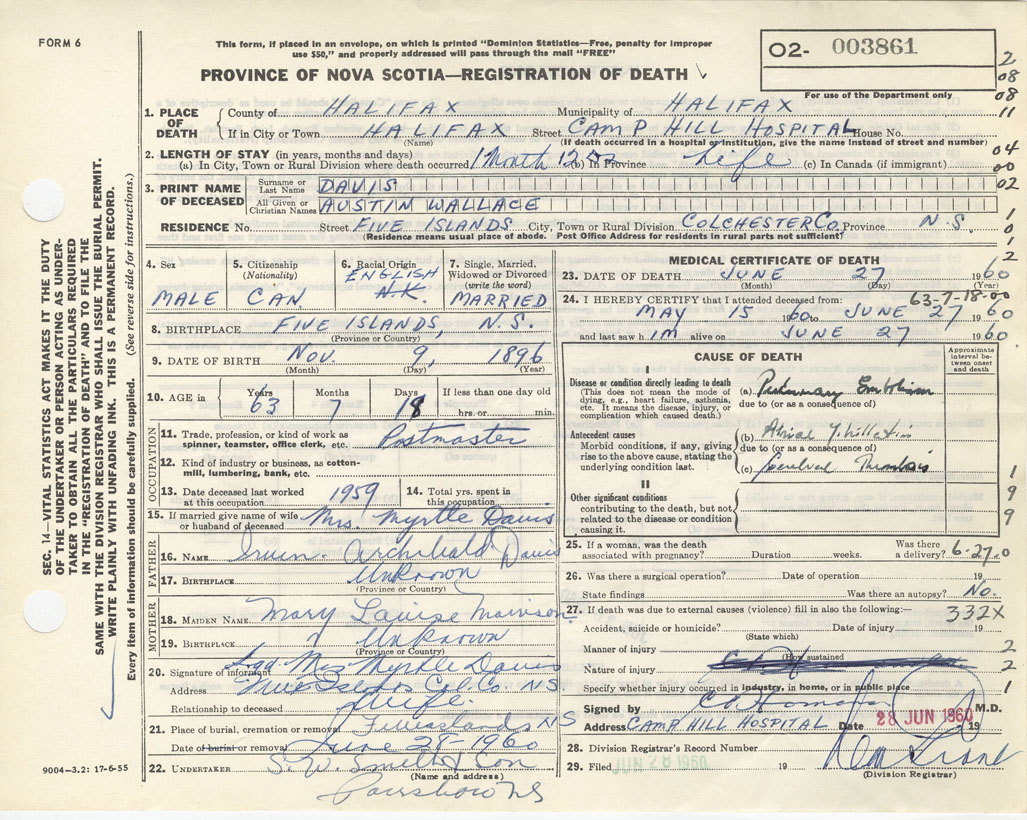 FORM 6
This form, if placed in an envelope, on which is printed "Dominion Statistics—Free, penalty for improper
use $50," and properly addressed will pass through the mail "FREE"
O2- 003861
PROVINCE OF NOVA SCOTIA—REGISTRATION OF DEATH
For use of the Department only
2
08
08
11
04
00
02
1
0
1
2
1. PLACE OF DEATH
County of HALIFAX Municipality of HALIFAX
If in City or Town HALIFAX Street CAMP HILL HOSPITAL House No.
(Name) (If death occurred in a hospital or institution, give the name instead of street and number)
2. LENGTH OF STAY (in years, months and days)
(a) In City, Town or Rural Division where death occurred 1 Month 12 (b) In Province Life (c) In Canada (if immigrant)
3. PRINT NAME OF DECEASED
Surname or Last Name DAVIS
All Given or Christian Names AUSTIN WALLACE
RESIDENCE No. Street FIVE ISLANDS City, Town or Rural Division COLCHESTER Co. Province N.S.
(Residence means usual place of abode. Post Office Address for residents in rural parts not sufficient)
4. Sex MALE
5. Citizenship (Nationality) CAN
6. Racial Origin ENGLISH N.K.
7. Single, Married, Widowed or Divorced (write the word) MARRIED
8. BIRTHPLACE FIVE ISLANDS, N.S.
(Province or Country)
9. DATE OF BIRTH Nov. 9, 1896
(Month) (Day) (Year)
10. AGE in Years 63 Months 7 Days 18 If less than one day old hrs. or min.
OCCUPATION
11. Trade, profession, or kind of work as spinner, teamster, office clerk, etc. Postmaster
12. Kind of industry or business, as cotton-mill, lumbering, bank, etc.
13. Date deceased last worked at this occupation 1959 14. Total yrs. spent in this occupation
15. If married give name of wife or husband of deceased Mrs. Myrtle Davis
FATHER
16. NAME Archibald Davis
17. BIRTHPLACE Unknown
(Province or Country)
MOTHER
18. MAIDEN NAME Mary Louise
19. BIRTHPLACE Unknown
(Province or Country)
20. Signature of informant Sgd. Mrs Myrtle Davis
Address Five Islands Col. Co. NS.
Relationship to deceased Wife
21. Place of burial, cremation or removal Five Islands NS
Date of burial or removal June 28 - 1960
22. UNDERTAKER S. W. Smith & Son
(Name and address)
Parrsboro NS
MEDICAL CERTIFICATE OF DEATH
23. DATE OF DEATH JUNE 27 1960
(Month) (Day) (Year)
63-7-18-00
24. I HEREBY CERTIFY that I attended deceased from:
MAY 15 1960 to JUNE 27 1960
and last saw h IM alive on JUNE 27 1960
CAUSE OF DEATH
Approximate interval between onset and death
I
Disease or condition directly leading to death
(This does not mean the mode of dying, e.g., heart failure, asthenia, etc. It means the disease, injury, or complication which caused death.)
(a) Pulmonary Embolism
due to (or as a consequence of)
Antecedent causes
Morbid conditions, if any, giving rise to the above cause, stating the underlying condition last.
(b) Atrial Fibrillation
due to (or as a consequence of)
(c) Cerebral Thrombosis
II
Other significant conditions contributing to the death, but not related to the disease or condition causing it.
1
9
9
25. If a woman, was the death associated with pregnancy? Duration weeks. Was there a delivery? 6-27-0
26. Was there a surgical operation? Date of operation 19
State findings Was there an autopsy? No.
27. If death was due to external causes (violence) fill in also the following:— 332X
Accident, suicide or homicide? Date of injury 19
(State which)
Manner of injury 2
(How sustained
Nature of injury 2
Specify whether injury occurred in industry, in home, or in public place 1
Signed by M.D.
Address CAMP HILL HOSPITAL Date 28 JUN 1960 19
28. Division Registrar's Record Number
29. Filed JUN 28 1960 19
(Division Registrar)
SEC. 14—VITAL STATISTICS ACT MAKES IT THE DUTY
OF THE UNDERTAKER OR PERSON ACTING AS UNDER-
TAKER TO OBTAIN ALL THE PARTICULARS REQUIRED
IN THE "REGISTRATION OF DEATH" AND TO FILE THE
SAME WITH THE DIVISION REGISTRAR WHO SHALL ISSUE THE BURIAL PERMIT.
WRITE PLAINLY WITH UNFADING INK. THIS IS A PERMANENT RECORD.
Every item of information should be carefully supplied. (See reverse side for instructions.)
9004—3.2: 17-6-55